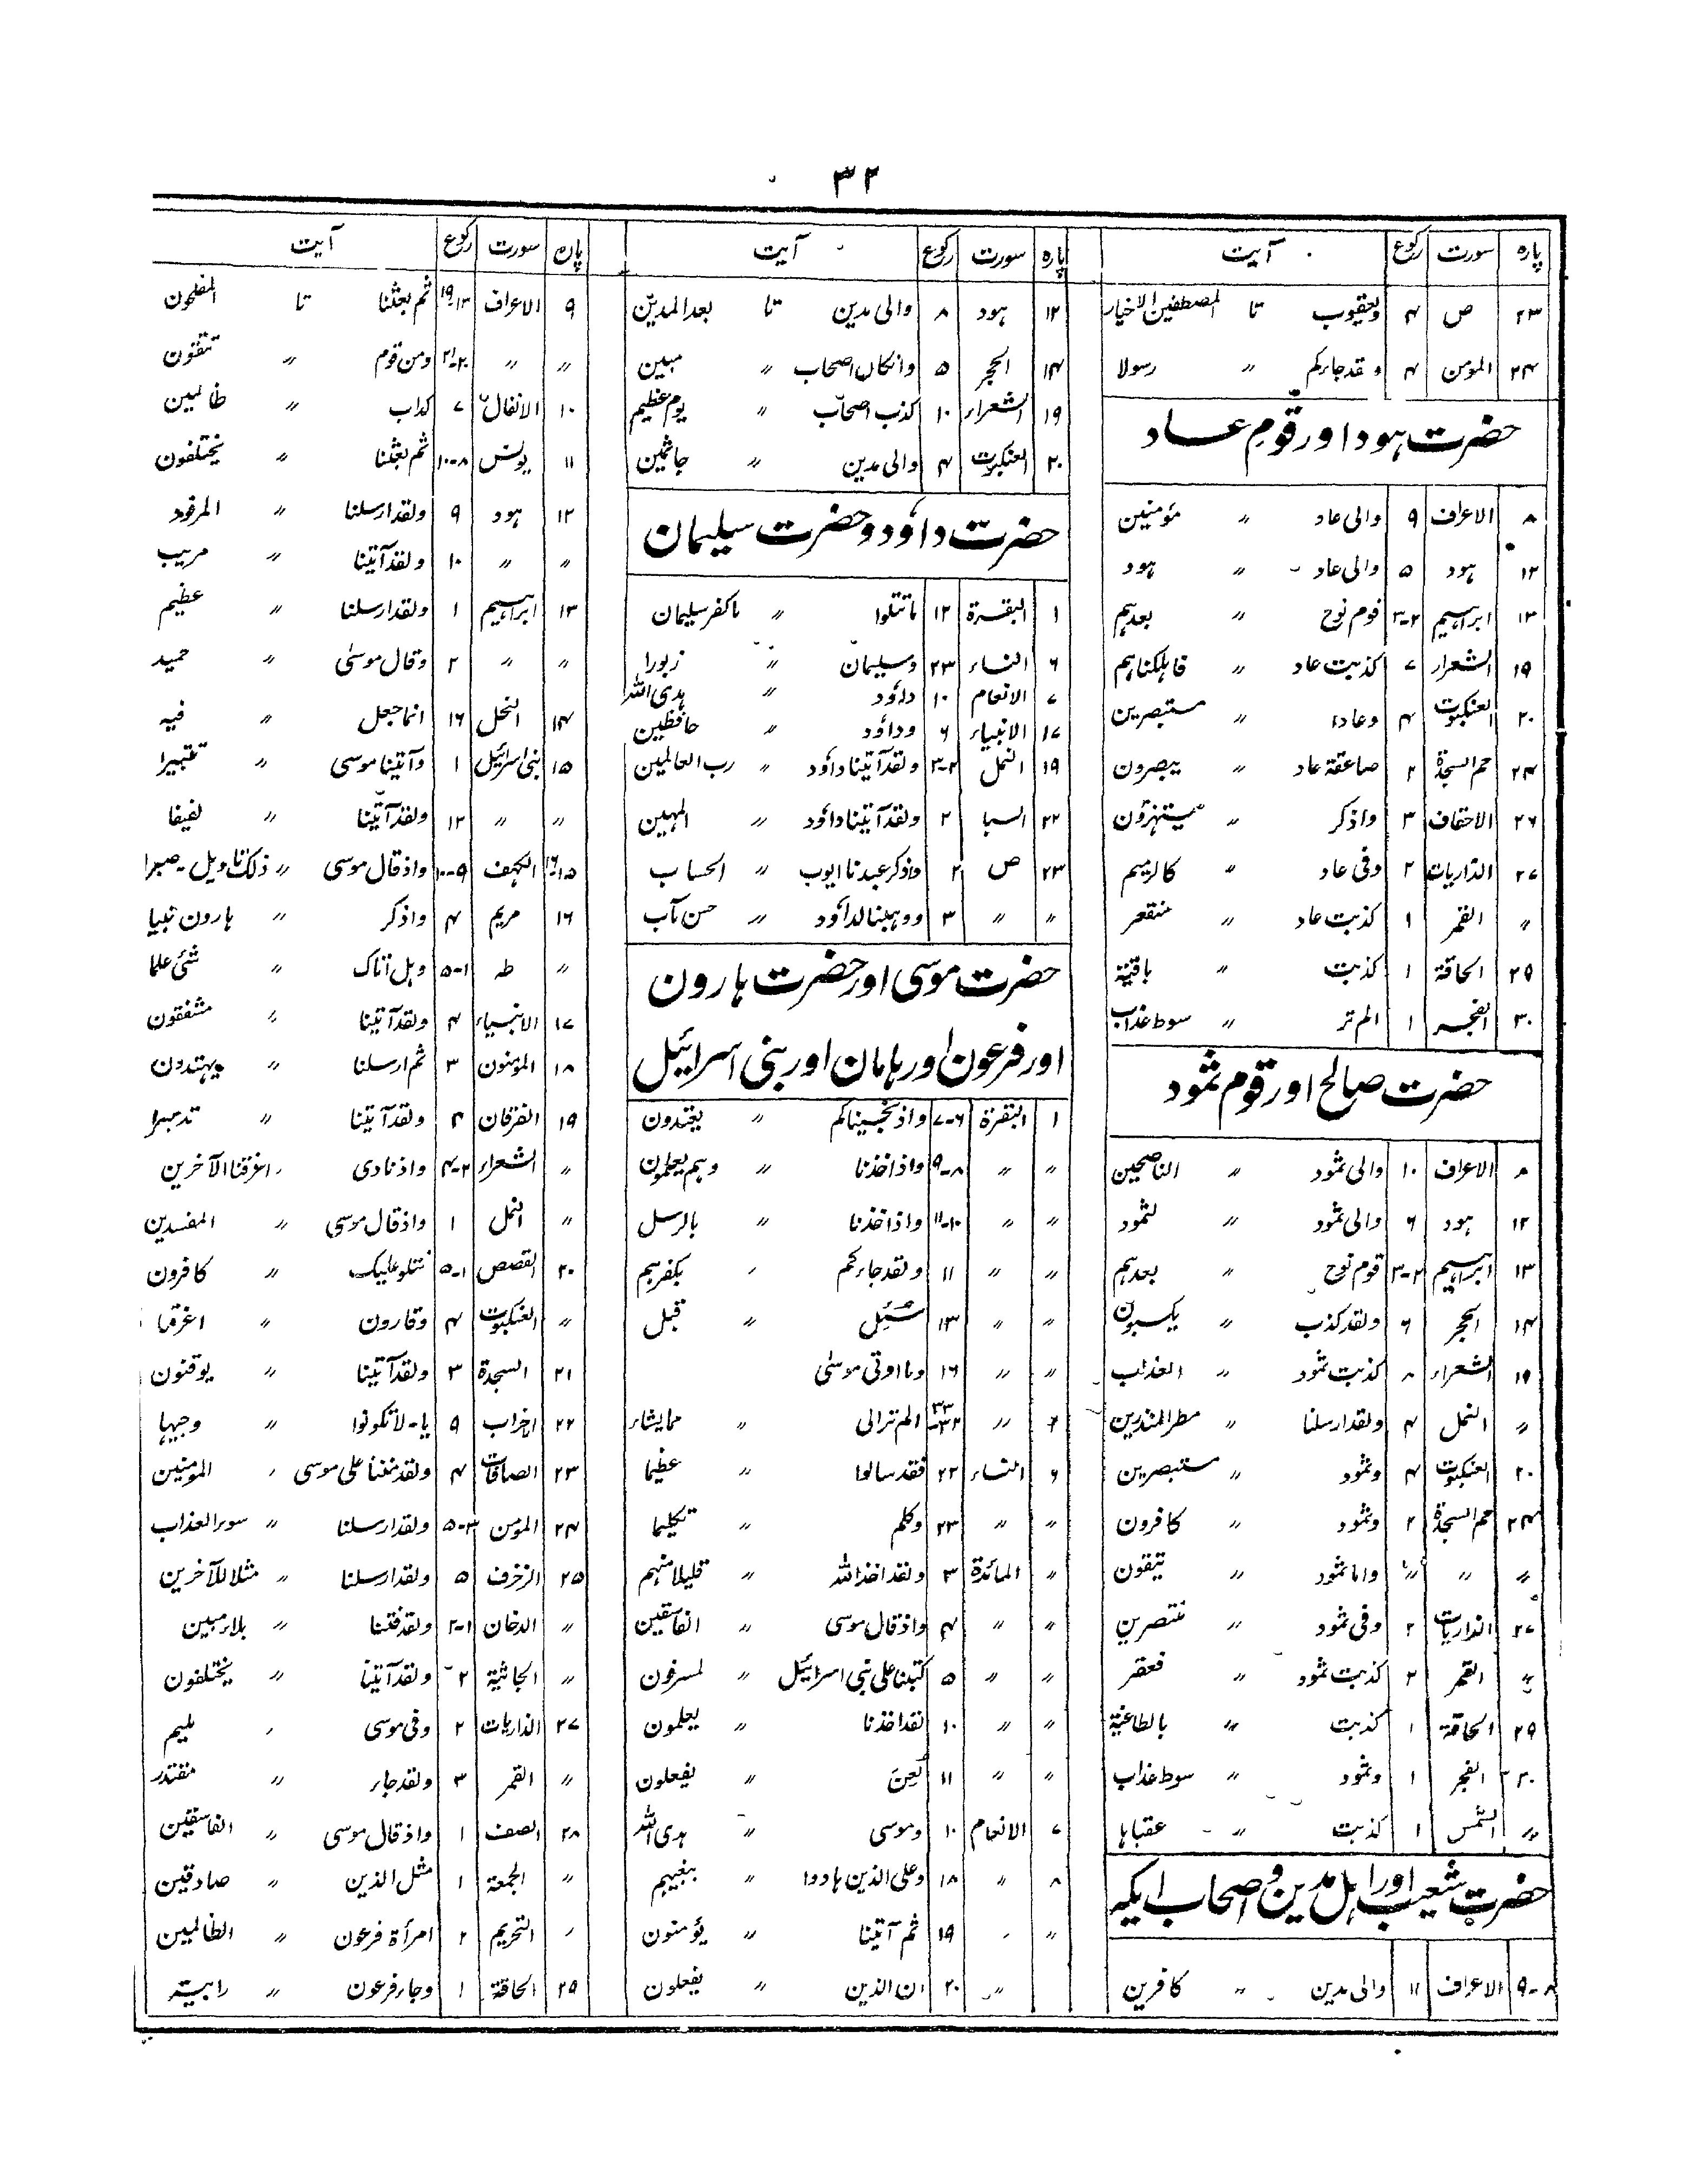 ۳۲
پارہ سورت رکوع آیت
۲۳ ص ۴ ویعقوب تا لمصطفین الاخیار
۲۴ المومن ۴ وقد جارکم 〃 رسولا
حضرت ہود اور قومِ عاد
۸ الاعراف ۹ والی عاد 〃 مؤمنین
۱۲ ہود ۵ والی عاد 〃 ہود
۱۳ ابراہیم ۲-۳ قوم نوح 〃 بعدہم
۱۹ الشعرار ۷ کذبت عاد 〃 فاہلکناہم
۲۰ العنکبوت ۴ وعادا 〃 مستبصرین
۲۴ حم السجدۃ ۲ صاعقۃ عاد 〃 یبصرون
۲۶ الاحقاف ۳ واذکر 〃 یستہزؤن
۲۷ الذاریات ۲ وفی عاد 〃 کالرمیم
〃 القمر ۱ کذبت عاد 〃 منقعر
۲۹ الحاقۃ ۱ کذبت 〃 باقیۃ
۳۰ الفجر ۱ الم تر 〃 سوط عذاب
حضرت صالح اور قوم ثمود
۸ الاعراف ۱۰ والی ثمود 〃 الناصحین
۱۲ ہود ۶ والی ثمود 〃 لثمود
۱۳ ابراہیم ۲-۳ قوم نوح 〃 بعدہم
۱۴ الحجر ۶ ولقد کذب 〃 یکسبون
۱۹ الشعراء ۸ کذبت ثمود 〃 العذاب
〃 النمل ۴ ولقد ارسلنا 〃 مطر المنذرین
۲۰ العنکبوت ۴ وثمود 〃 مستبصرین
۲۴ حم السجدۃ ۲ وثمود 〃 کافرون
〃 〃 〃 واما ثمود 〃 یتقون
۲۷ الذاریات ۲ وفی ثمود 〃 منتصرین
〃 القمر ۲ کذبت ثمود 〃 فعقر
۲۹ الحاقۃ ۱ کذبت 〃 بالطاغیۃ
۳۰ الفجر ۱ وثمود 〃 سوط عذاب
〃 الشمس ۱ کذبت 〃 عقباہا
حضرت شعیب اور اہل مدین و اصحاب ایکہ
۸-۹ الاعراف ۱۱ والی مدین 〃 کافرین
پارہ سورت رکوع آیت
۱۲ ہود ۸ والی مدین تا بعدالمدین
۱۴ الحجر ۵ وانکان اصحاب 〃 مبین
۱۹ الشعراء ۱۰ کذب اصحاب 〃 یوم عظیم
۲۰ العنکبوت ۴ والی مدین 〃 جاثمین
حضرت داؤد و حضرت سلیمان
۱ البقرۃ ۱۲ ماتتلوا 〃 ماکفر سلیمان
۶ النساء ۲۳ وسلیمان 〃 زبورا
۷ الانعام ۱۰ داؤد 〃 ہدی اللہ
۱۷ الانبیاء ۶ وداؤد 〃 حافظین
۱۹ النمل ۲-۳ ولقد آتینا داؤد 〃 رب العالمین
۲۲ السبا ۲ ولقد آتینا داؤد 〃 المہین
۲۳ ص ۲ واذکر عبدنا ایوب 〃 الحساب
〃 〃 ۳ ووہبنا لداؤد 〃 حسن مآب
حضرت موسی اور حضرت ہارون
اور فرعون اور ہامان اور بنی اسرائیل
۱ البقرۃ ۶-۷ واذ نجیناکم 〃 یعتدون
〃 〃 ۸-۹ واذ اخذنا 〃 وہم یعلمون
〃 〃 ۱۰-۱۱ واذ اخذنا 〃 بالرسل
〃 〃 ۱۱ ولقد جارکم 〃 بکفرہم
〃 〃 ۱۳ سُئِل 〃 قبل
〃 〃 ۱۶ وما اوتی موسی
۲ 〃 ۳۲-۳۳ الم ترالی 〃 مما یشاء
۶ النساء ۲۲ فقد سالوا 〃 عظیما
〃 〃 ۲۳ وکلم 〃 تکلیما
〃 المائدۃ ۳ ولقد اخذ اللہ 〃 قلیلا منہم
〃 〃 ۴ واذ قال موسی 〃 الفاسقین
〃 〃 ۵ کتبنا علی بنی اسرائیل 〃 لمسرفون
〃 〃 ۱۰ لقد اخذنا 〃 یعلمون
〃 〃 ۱۱ لعن 〃 یفعلون
۷ الانعام ۱۰ وموسی 〃 ہدی اللہ
۸ 〃 ۱۸ وعلی الذین ہادوا 〃 ببغیہم
〃 〃 ۱۹ ثم آتینا 〃 یؤمنون
〃 ۲۰ ان الذین 〃 یفعلون
پارہ سورت رکوع آیت
۹ الاعراف ۱۳-۱۹ ثم بعثنا تا المفلحون
〃 〃 ۲۰-۲۱ ومن قوم 〃 تتقون
۱۰ الانفال ۷ کداب 〃 ظالمین
۱۱ یونس ۸-۱۰ ثم بعثنا 〃 یختلفون
۱۲ ہود ۹ ولقد ارسلنا 〃 المرفود
〃 〃 ۱۰ ولقد آتینا 〃 مریب
۱۳ ابراہیم ۱ ولقد ارسلنا 〃 عظیم
〃 〃 ۲ وقال موسی 〃 حمید
۱۴ النحل ۱۶ انما جعل 〃 فیہ
۱۵ بنی اسرائیل ۱ وآتینا موسی 〃 تتبیرا
〃 〃 ۱۲ ولقد آتینا 〃 لفیفا
۱۵-۱۶ الکہف ۹-۱۰ واذ قال موسی 〃 ذلک تاویل - صبرا
۱۶ مریم ۴ واذکر 〃 ہارون نبیا
〃 طہ ۱-۵ وہل اتاک 〃 شئ علما
۱۷ الانبیاء ۴ ولقد آتینا 〃 مشفقون
۱۸ المؤمنون ۳ ثم ارسلنا 〃 یہتدون
۱۹ الفرقان ۴ ولقد آتینا 〃 تدمیرا
〃 الشعراء ۲-۴ واذ نادی 〃 اغرقنا الآخرین
〃 النمل ۱ واذ قال موسی 〃 المفسدین
۲۰ القصص ۱-۵ نتلو علیک 〃 کافرون
〃 العنکبوت ۴ وقارون 〃 اغرقنا
۲۱ السجدۃ ۳ ولقد آتینا 〃 یوقنون
۲۲ احزاب ۹ یا - لاتکونوا 〃 وجیہا
۲۳ الصافات ۴ ولقد مننا علی موسی 〃 المومنین
۲۴ المؤمن ۳-۵ ولقد ارسلنا 〃 سورالعذاب
۲۵ الزخرف ۵ ولقد ارسلنا 〃 مثلا للآخرین
〃 الدخان ۱-۲ ولقد فتنا 〃 بلار مبین
〃 الجاثیۃ ۲ ولقد آتینا 〃 یختلفون
۲۷ الذاریات ۲ وفی موسی 〃 ملیم
〃 القمر ۳ ولقد جار 〃 مقتدر
۲۸ الصف ۱ واذ قال موسی 〃 الفاسقین
〃 الجمعۃ ۱ مثل الذین 〃 صادقین
〃 التحریم ۲ امرأۃ فرعون 〃 الظالمین
۲۹ الحاقۃ ۱ وجاء فرعون 〃 رابیۃ